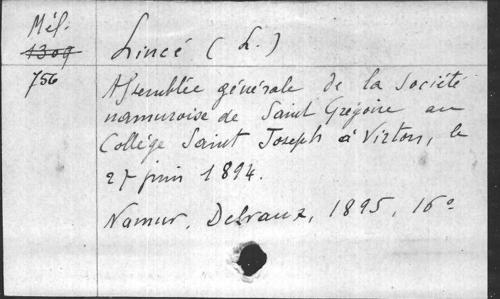 Mél.
1309
756
Lincé (L.)
Assemblée générale de la Société
namuroise de Saint Grégoire au
Collège Saint Joseph à Virton, le
27 juin 1894.
Namur, Delvaux, 1895, 16º